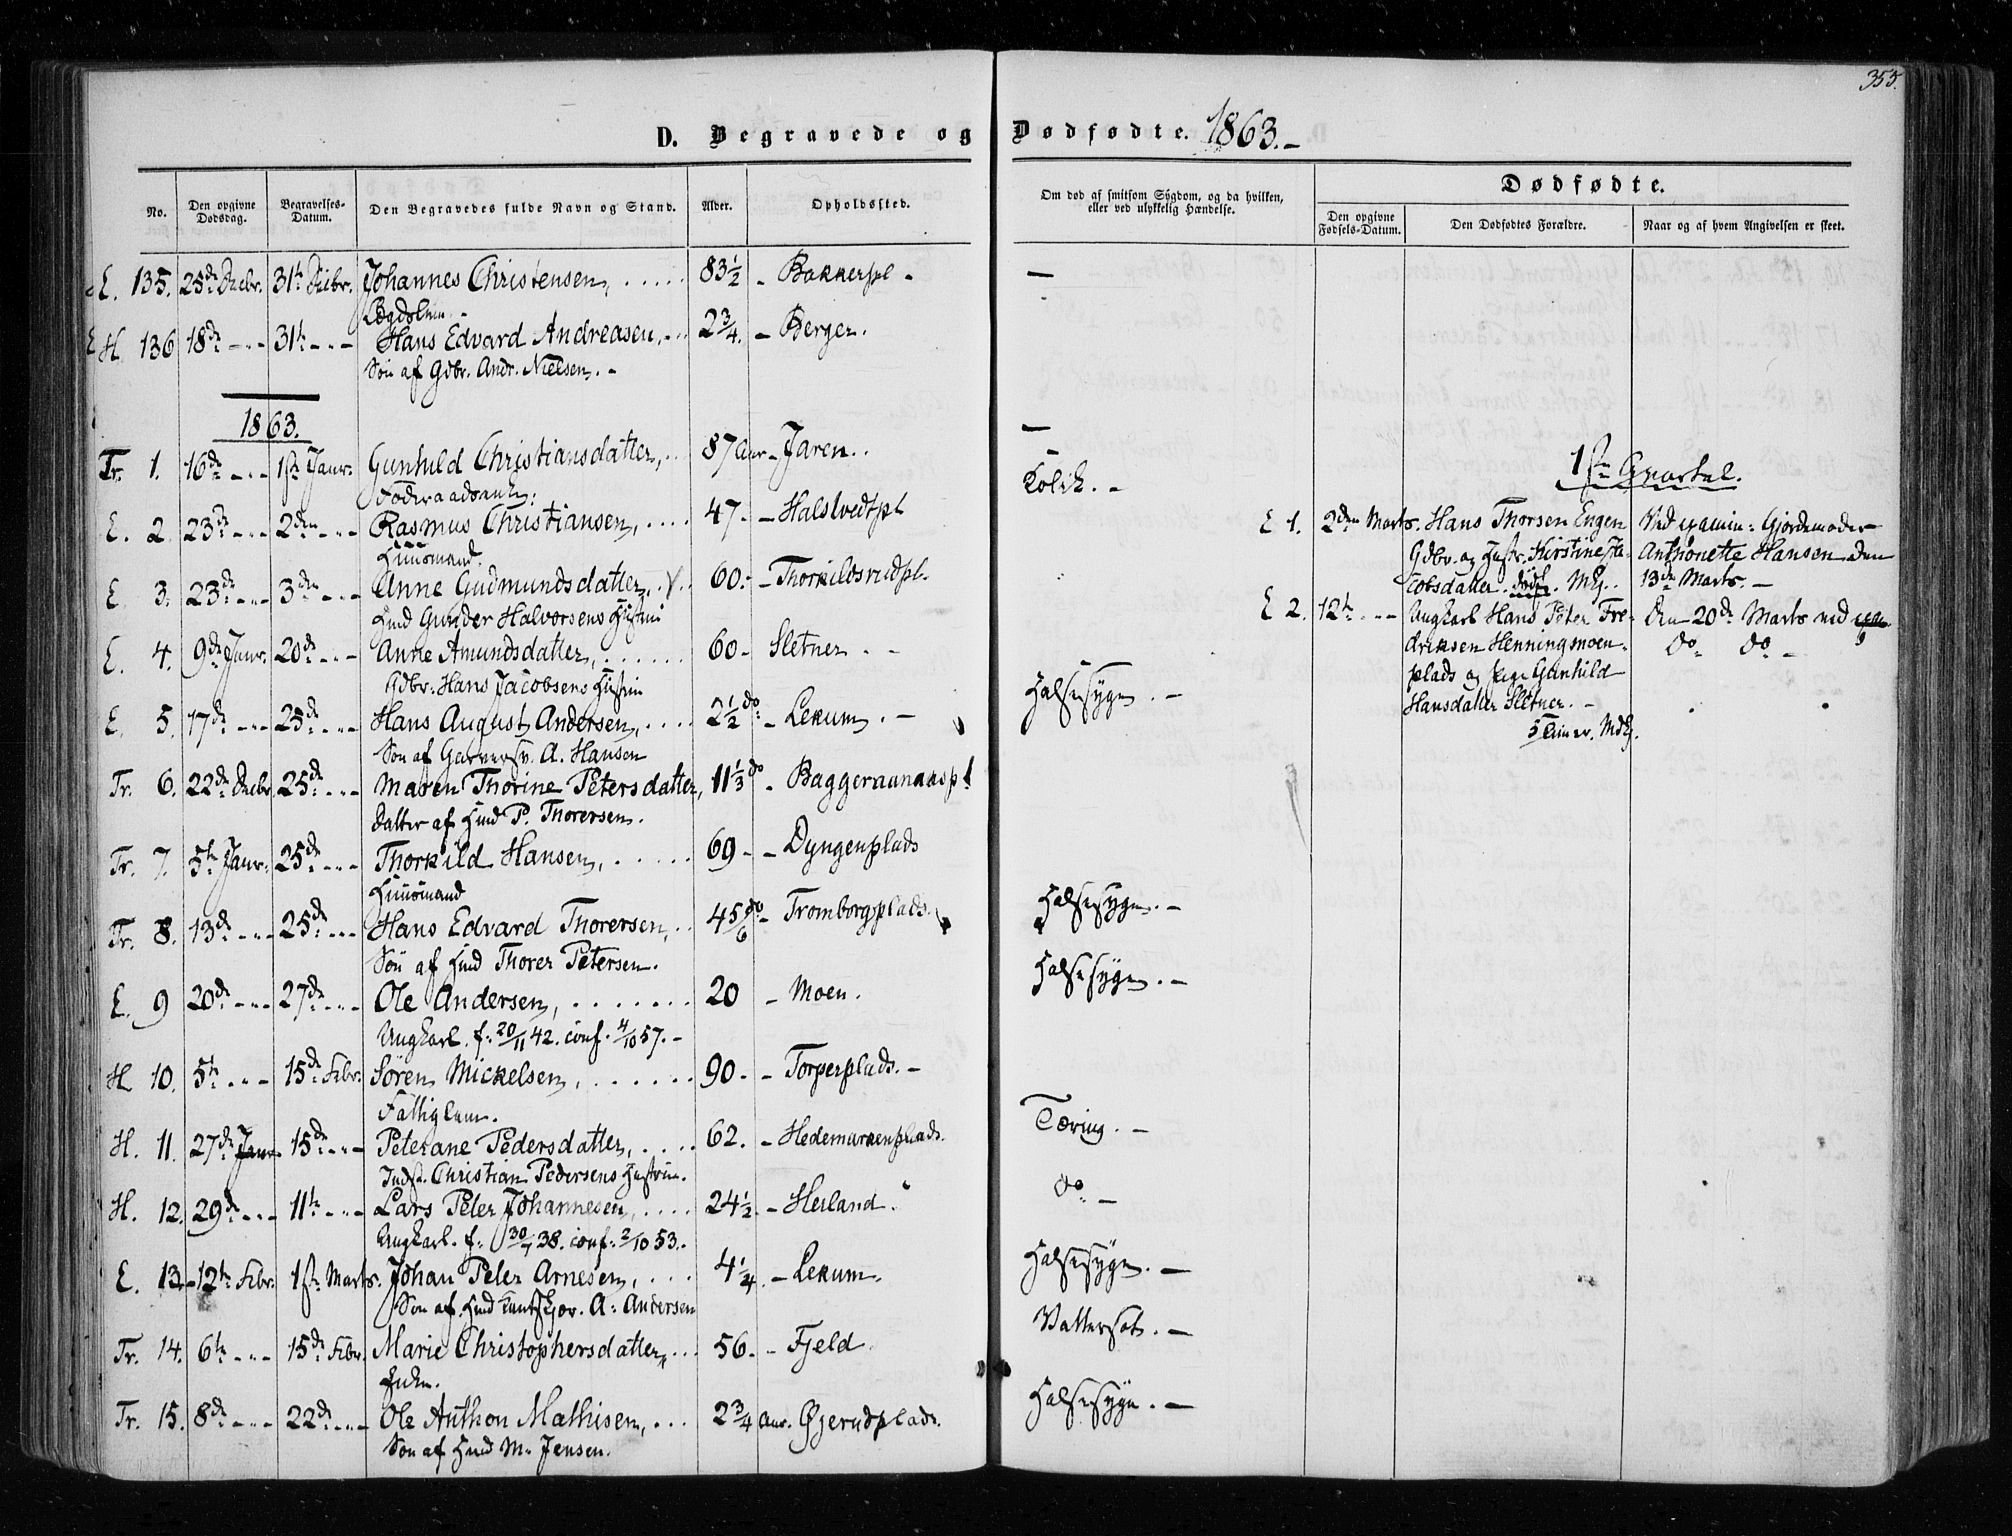 353.
D. Begravede og Dødfødte. 1863.-
No.
Den opgivne Dødsdag.
Begravelses-Datum.
Den Begravedes fulde Navn og Stand.
Alder.
Opholdssted.
Om død af smitsom Sygdom, og da hvilken, eller ved ulykkelig Hændelse.
Dødfødte.
Den opgivne Fødsels-Datum.
Den Dødfødtes Forældre.
Naar og af hvem Angivelsen er skeet.
E. 135. 25de Decbr. 31te Decbr. Johannes Christensen, ..... 83½ - Bakkerpl - —
Lægdslem. -
H. 136 18de - " - 31te - " - Hans Edvard Andreasen, ... 2¾. - Berger.
Søn af Gdbr. Andr. Nielsen. -
1863.
Tr. 1. 16de - " - 1ste Janr. Gunhild Christiansdatter, .. 87 Aar - Jaren. . —
Føderaadsenke.
E. 2. 23de - " - 2den - " - Rasmus Christiansen, .... 47. - Halslvedtpl Kolik. -
Huusmand.
E. 3. 23de - " - 3die - " - Anne Gudmundsdatter, .. 60. - Thorkildsrudpl.
Hmd Gunder Halvorsens Hustru
E. 4. 9de Janr. 20de - " - Anne Amundsdatter, ...... 60 - Sletner . -
Gdbr. Hans Jacobsens Hustru
E. 5. 17de - " - 25de - " - Hans August Andersen, .... 2½ do - Lekum . - Halsesyge . -
Søn af Garversv. A. Hansen
Tr. 6. 22de Decbr. 25de - " - Maren Thorine Petersdatter, 11⅓ do - Baggeraunaaspl
Datter af Hmd P. Thorersen.
Tr. 7. 5te Janr. 25de - " - Thorkild Hansen, ...... 69 - - Dyngenplads
Huusmand
Tr. 8. 13de - " - 25de - " - Hans Edvard Thorersen, .. 4 5/6 do - Tromborgplads. Halsesyge. -
Søn af Hmd Thorer Petersen.
E. 9 20de - " - 27de - " - Ole Andersen, ....... 20 - Moen. Halsesyge. -
Ungkarl. f. 20/11 42. conf. 4/10 57. -
H 10. 5te - " - 15de Febr. Søren Mickelsen, ....... 90. - Torperplads. -
Fattiglem.
H. 11. 27de Janr 15de - " - Peterane Pedersdatter, ..... 62. - Hedemarkenplads. Tæring. -
Inds. Christian Pedersens Hustru.
H. 12. 29de - " - 11te - " - Lars Peter Johannesen, .... 24½ - Heiland. do -
Ungkarl. f. 30/7 38. conf. 2/10 53.
E. 13. 12te Febr. 1ste Marts. Johan Peter Arnesen, .... 4¼ - Lekum. Halsesyge. -
Søn af Hmd A. Andersen
Tr. 14. 6te - " - 15de Febr. Marie Christophersdatter, ... 56. - Fjeld. Vattersot. -
Enke.
Tr. 15. 8de - " - 22de - " - Ole Anthon Mathisen, ... 2¾ Aar. Gjerudplads. Halsesyge. -
Søn af Hmd M. Jensen.
1ste Qvartal.
E 1. 2den Marts. Hans Thorsen Engen Ved examin: Gjordemoder
Gdbr. og Hustr. Kirstine Ja- Anthonette Hansen den
cobsdatter. dødf. MEg. 13de Marts. -
E 2. 12te - " - Ungkarl Hans Peter Fre- Den 20de Marts ved exam.
driksen Henningsmoen- do do -
plads og Pige Gunhild
Hansdatter Sletner. -
5 Timer. MdEg.